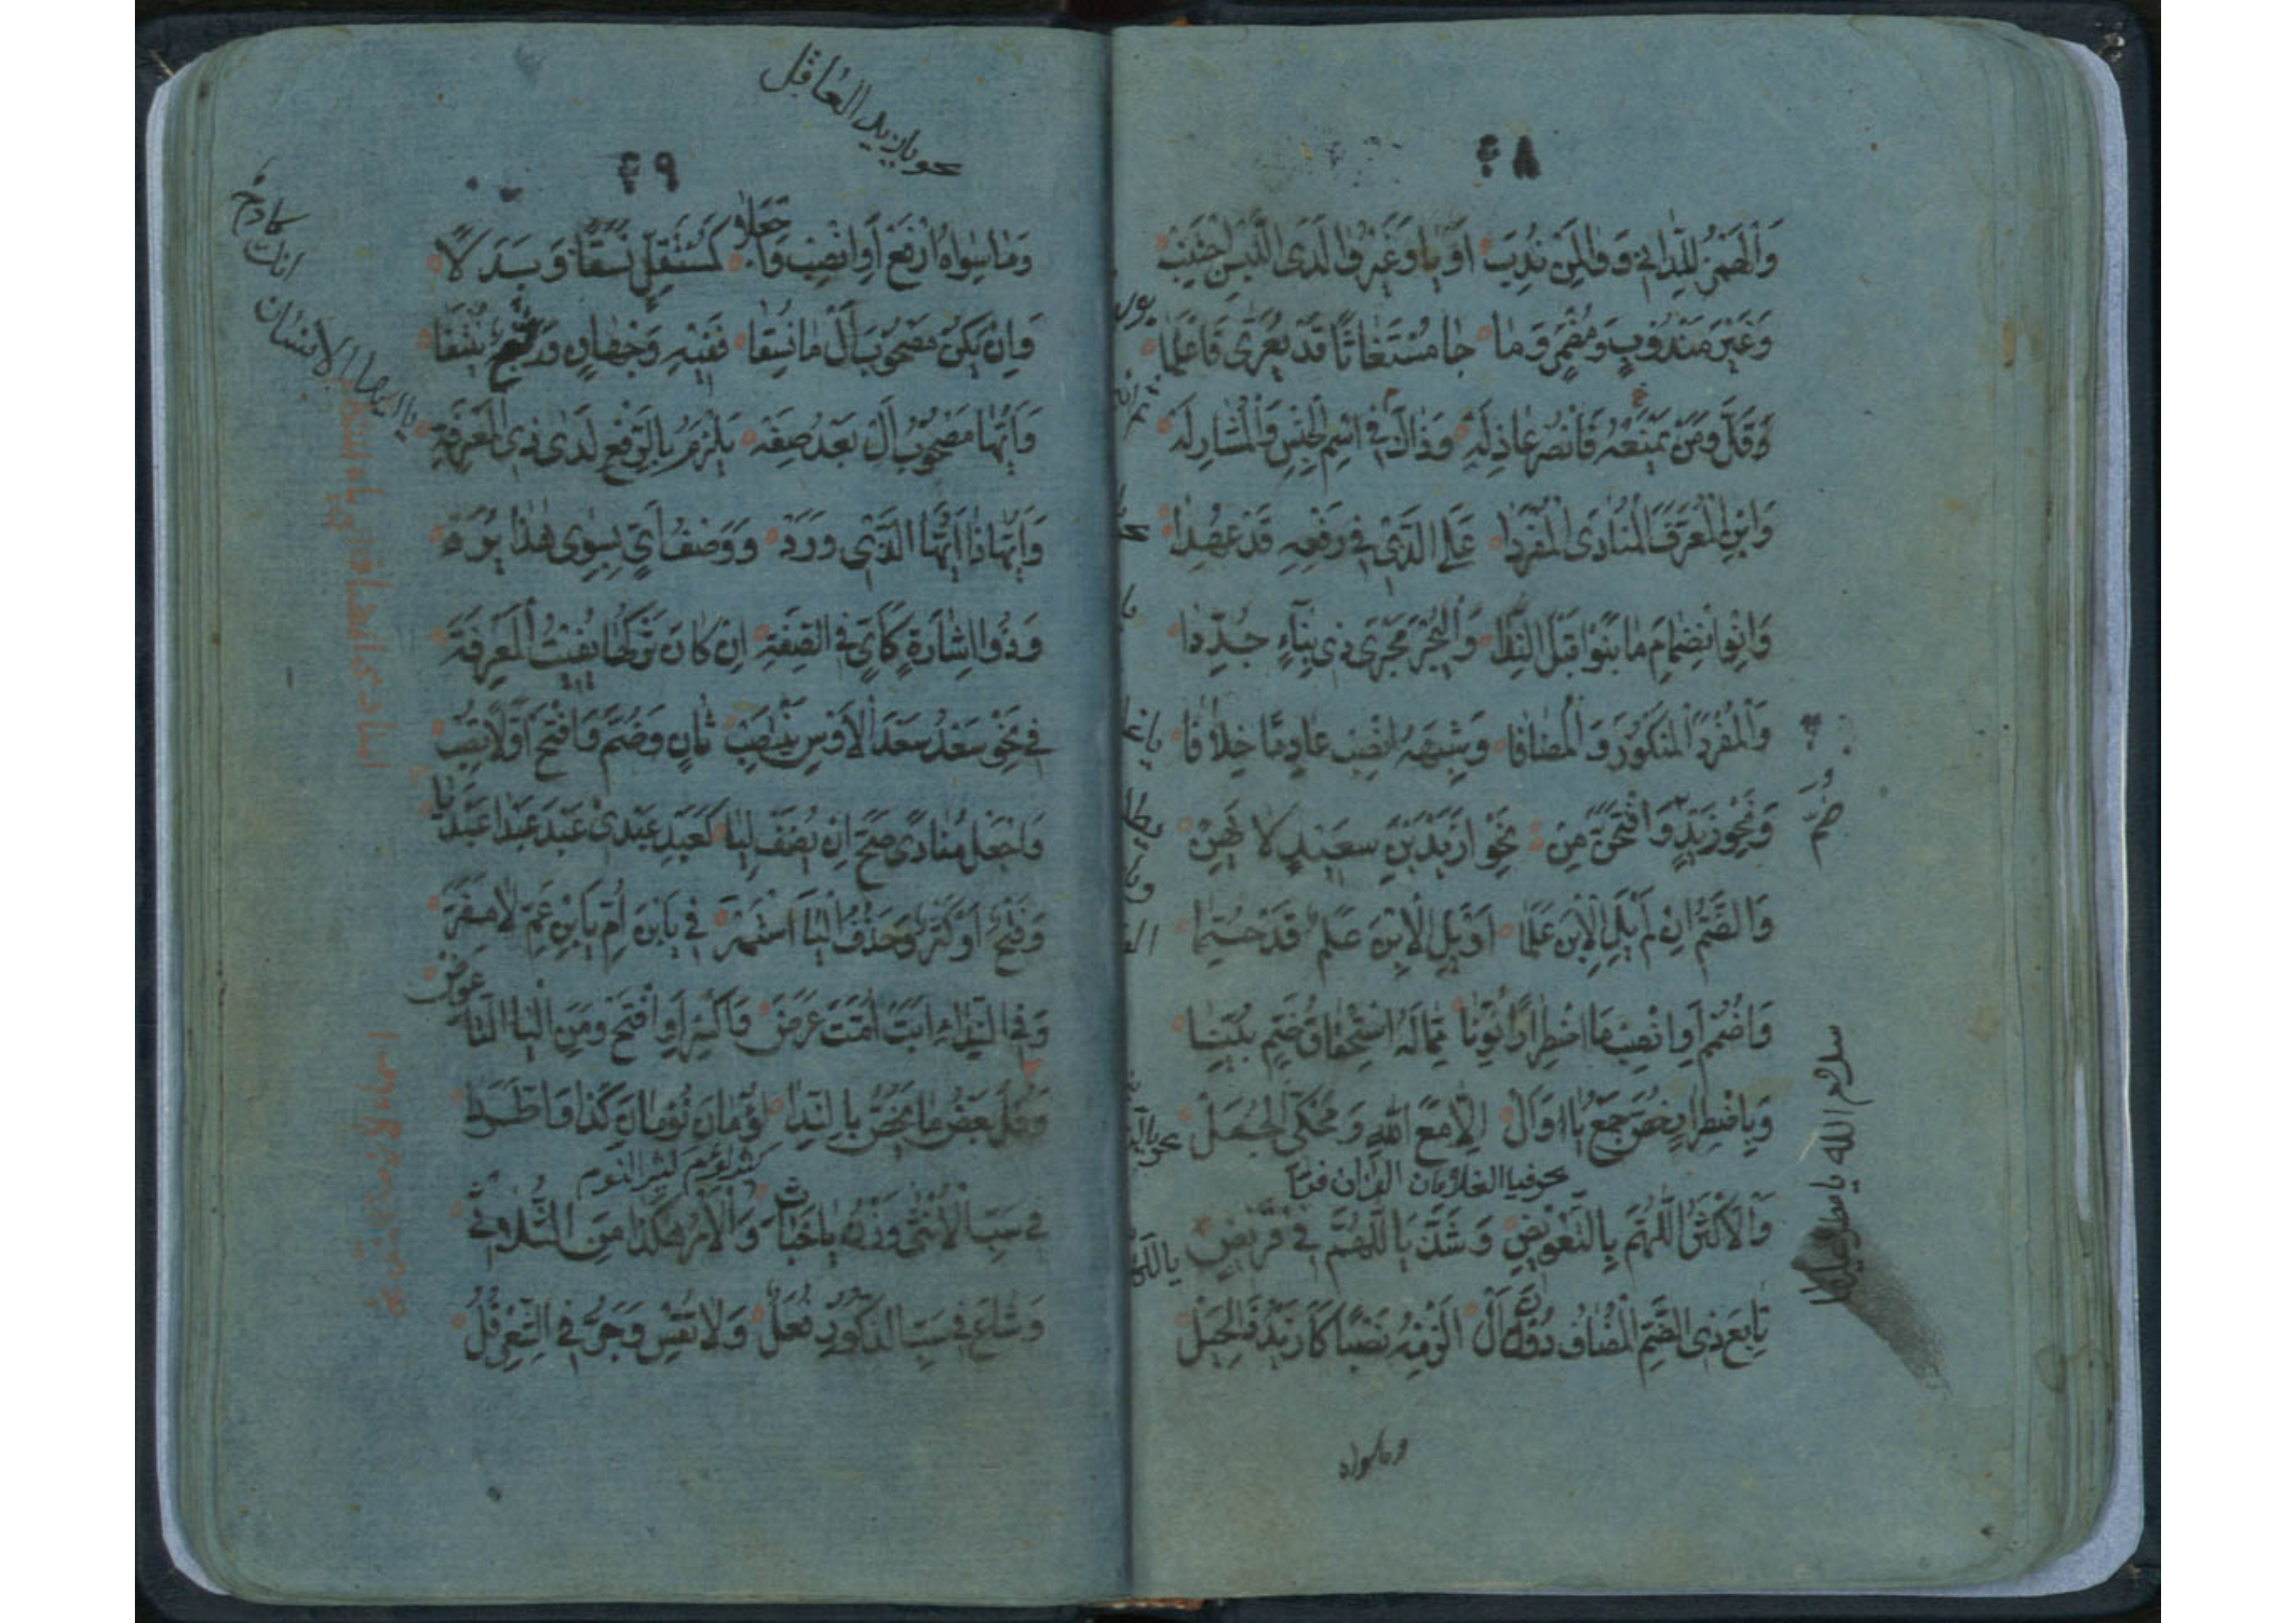 ٤٨
والهمز للداني ووا لمن ندب أو يا وغير وا لدى اللبس اجتنب
وغير مندوب ومضمر وما جا مستغاثا قد يعرى فاعلما
وقل ومن يمنعه فانصر عاذله وذاك في اسم الجنس والمشار له
وابن المعرف المنادى المفردا على الذي في رفعه قد عهدا
وانو انضمام ما بنوا قبل الندا وليجر مجرى ذي بناء جددا
والمفرد المنكور والمضافا وشبهه انصب عادما خلافا
ضم
ونحو زيد وافتحن من نحو ازيد بن سعيد لا تهن
والضم ان لم يل الابن علما او يل الابن علم قد حتما
واضمم او انصب ما اضطرارا نونا مما له استحقاق ضم بينا
وباضطرار خص جمع يا وال الا مع الله ومحكي الجمل
نحو فيا الغلامان اللذان فرا
والاكثر اللهم بالتعويض وشذ يا اللهم في قريض
سلام الله يا مطر عليها
تابع ذي الضم المضاف دون ال الزمه نصبا كأزيد ذا الحيل
وما سواه
٤٩
نحو يا زيد العاقل
وما سواه ارفع او انصب واجعلا كمستقل نسقا وبدلا
وان يكن مصحوب ال ما نسقا ففيه وجهان ورفع ينتقى
يا ايها الانسان انك كادح
وايها مصحوب ال بعد صفه يلزم بالرفع لدى ذي المعرفة
وايهاذا ايها الذي ورد ووصف اي بسوى هذا يرد
وذو اشارة كاي في الصفة ان كان تركها يفيت المعرفة
في نحو سعد سعد الاوس ينتصب ثان وضم وافتح اولا تصب
واجعل منادى صح ان يضف ليا كعبد عبدي عبد عبدا عبديا
وفتح او كسر وحذف اليا استمر في يا بن ام يا بن عم لا مفر
وفي الندا ابت امت عرض واكسر او افتح ومن اليا التا عوض
وفل بعض ما يخص بالندا لؤمان نومان كذا واطردا
في سب الانثى وزن يا خباث والامر هكذا من الثلاثي
وشاع في سب الذكور فعل ولا تقس وجر في الشعر فل